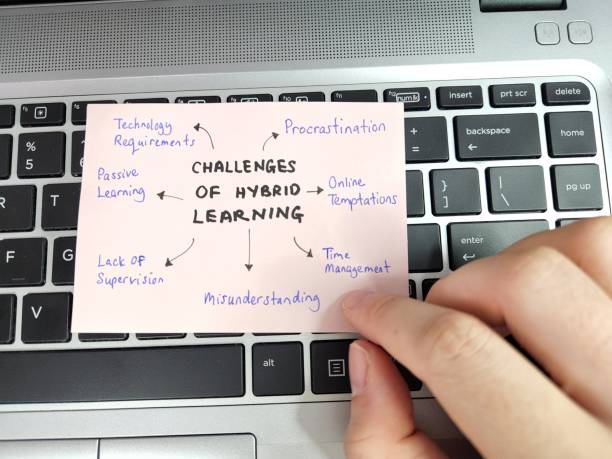 Technology
Requirements
Procrastination
CHALLENGES
OF HYBRID
LEARNING
Passive
Learning
Online
Temptations
Lack Of
Supervision
Time
Management
Misunderstanding
insert
prt scr
delete
backspace
home
pg up
enter
alt
num lk
%
5
+
=
}
]
|
\
R
T
F
G
V